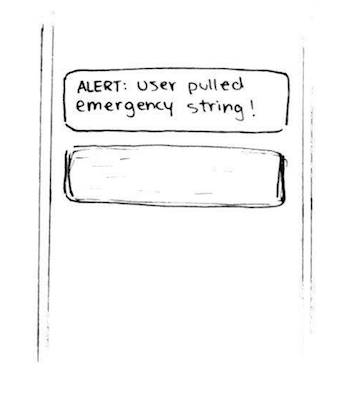 ALERT: User pulled
emergency string!